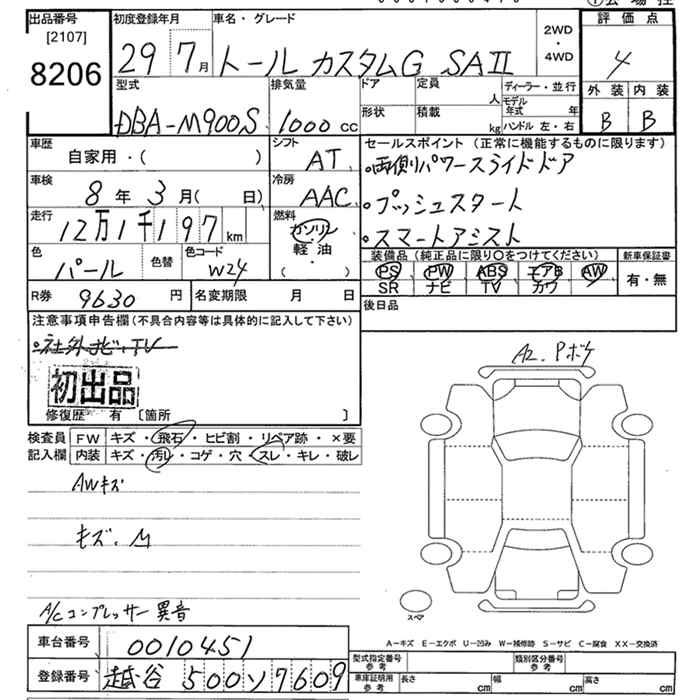 出品番号 [2107] 8206
初度登録年月 29 7月
車名・グレード トール カスタムG SAⅡ
2WD・4WD
評価点 4
型式 DBA-M900S
排気量 1000 cc
ドア
定員 人
形状
積載 kg
ディーラー・並行
モデル年式 年
ハンドル 左・右
外装 B
内装 B
車歴 自家用・( )
シフト AT
車検 8年3月( 日)
冷房 AAC
走行 12万1千197km
燃料 ガソリン・軽油 ( )
色 パール
色替
色コード W24
R券 9630円
名変期限 月 日
セールスポイント(正常に機能するものに限ります)
・両側パワースライドドア
・プッシュスタート
・スマートアシスト
装備品(純正品に限り○をつけてください)
PS PW ABS エアB AW
SR ナビ TV カワ
新車保証書 有・無
後日品
注意事項申告欄(不具合内容等は具体的に記入して下さい)
・社外ナビ・TV
初出品
修復歴 有 〔箇所 〕
A2. Pボケ
検査員記入欄
FW キズ・飛石・ヒビ割・リペア跡・×要
内装 キズ・汚れ・コゲ・穴・スレ・キレ・破レ
AWキズ
キズ.M
A/Cコンプレッサー異音
スペア
A-キズ E-エクボ U-凹み W-補修跡 S-サビ C-腐食 XX-交換済
車台番号 0010451
登録番号 越谷 500ソ7609
型式指定番号 参考
類別区分番号 参考
車庫証明用 参考
長さ cm
幅 cm
高さ cm